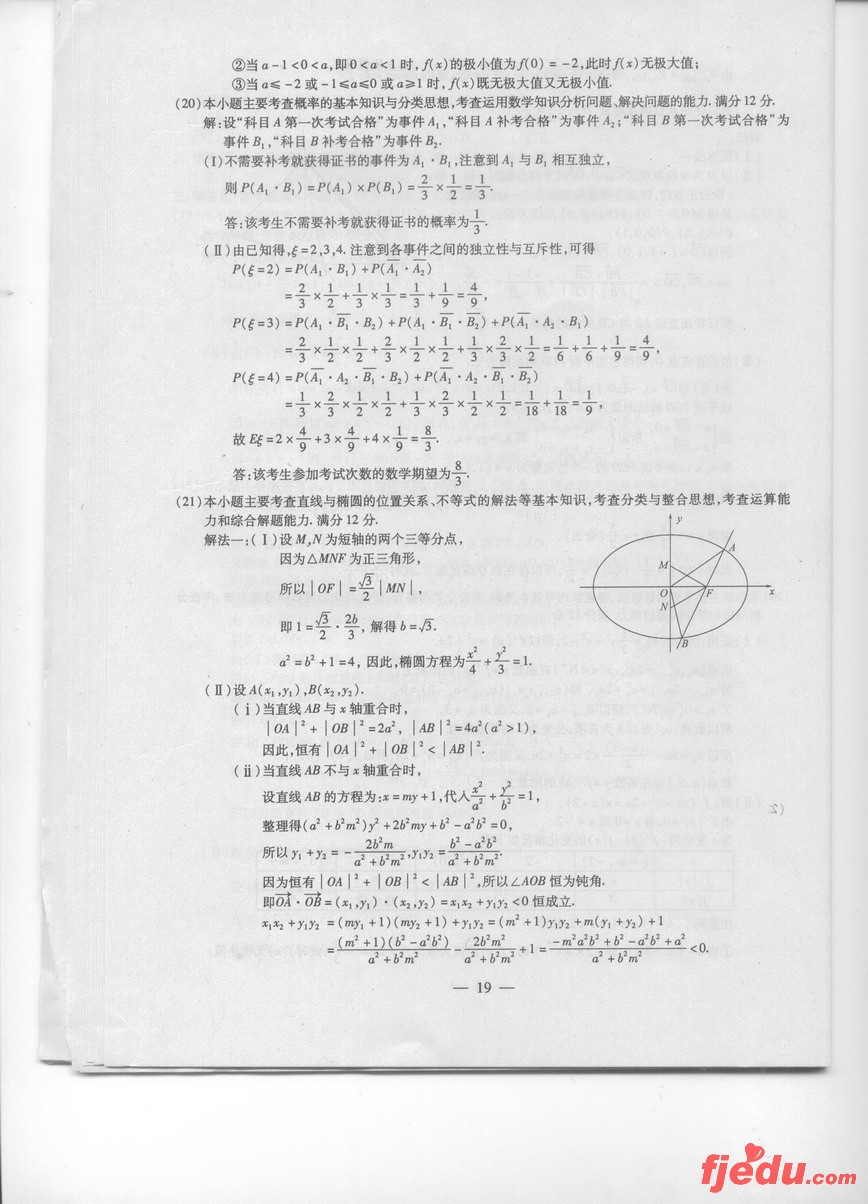 ②当 a-1<0<a,即0<a<1时,f(x)的极小值为f(0)=-2,此时f(x)无极大值;
③当a≤-2或-1≤a≤0或a≥1时,f(x)既无极大值又无极小值.
(20)本小题主要考查概率的基本知识与分类思想,考查运用数学知识分析问题、解决问题的能力.满分12分.
解:设“科目A第一次考试合格”为事件A₁,“科目A补考合格”为事件A₂;“科目B第一次考试合格”为
事件B₁,“科目B补考合格”为事件B₂.
(Ⅰ)不需要补考就获得证书的事件为A₁·B₁,注意到A₁与B₁相互独立,
则P(A₁·B₁)=P(A₁)×P(B₁)=2/3×1/2=1/3.
答:该考生不需要补考就获得证书的概率为1/3.
(Ⅱ)由已知得,ξ=2,3,4.注意到各事件之间的独立性与互斥性,可得
P(ξ=2)=P(A₁·B₁)+P(A̅₁·A̅₂)
=2/3×1/2+1/3×1/3=1/3+1/9=4/9,
P(ξ=3)=P(A₁·B̅₁·B₂)+P(A₁·B̅₁·B̅₂)+P(A̅₁·A₂·B₁)
=2/3×1/2×1/2+2/3×1/2×1/2+1/3×2/3×1/2=1/6+1/6+1/9=4/9,
P(ξ=4)=P(A̅₁·A₂·B̅₁·B₂)+P(A̅₁·A₂·B̅₁·B̅₂)
=1/3×2/3×1/2×1/2+1/3×2/3×1/2×1/2=1/18+1/18=1/9,
故Eξ=2×4/9+3×4/9+4×1/9=8/3.
答:该考生参加考试次数的数学期望为8/3.
(21)本小题主要考查直线与椭圆的位置关系、不等式的解法等基本知识,考查分类与整合思想,考查运算能
力和综合解题能力.满分12分.
解法一:(Ⅰ)设M,N为短轴的两个三等分点,
因为△MNF为正三角形,
所以|OF|=√3/2|MN|,
即1=√3/2·2b/3,解得b=√3.
a²=b²+1=4,因此,椭圆方程为x²/4+y²/3=1.
y
A
M
O
F
x
N
B
(Ⅱ)设A(x₁,y₁),B(x₂,y₂).
(ⅰ)当直线AB与x轴重合时,
|OA|²+|OB|²=2a²,|AB|²=4a²(a²>1),
因此,恒有|OA|²+|OB|²<|AB|².
(ⅱ)当直线AB不与x轴重合时,
设直线AB的方程为:x=my+1,代入x²/a²+y²/b²=1,
整理得(a²+b²m²)y²+2b²my+b²-a²b²=0,
所以y₁+y₂=-2b²m/(a²+b²m²),y₁y₂=(b²-a²b²)/(a²+b²m²).
因为恒有|OA|²+|OB|²<|AB|²,所以∠AOB恒为钝角.
即OA→·OB→=(x₁,y₁)·(x₂,y₂)=x₁x₂+y₁y₂<0恒成立.
x₁x₂+y₁y₂=(my₁+1)(my₂+1)+y₁y₂=(m²+1)y₁y₂+m(y₁+y₂)+1
=(m²+1)(b²-a²b²)/(a²+b²m²)-2b²m²/(a²+b²m²)+1=(-m²a²b²+b²-a²b²+a²)/(a²+b²m²)<0.
— 19 —
fjedu.com